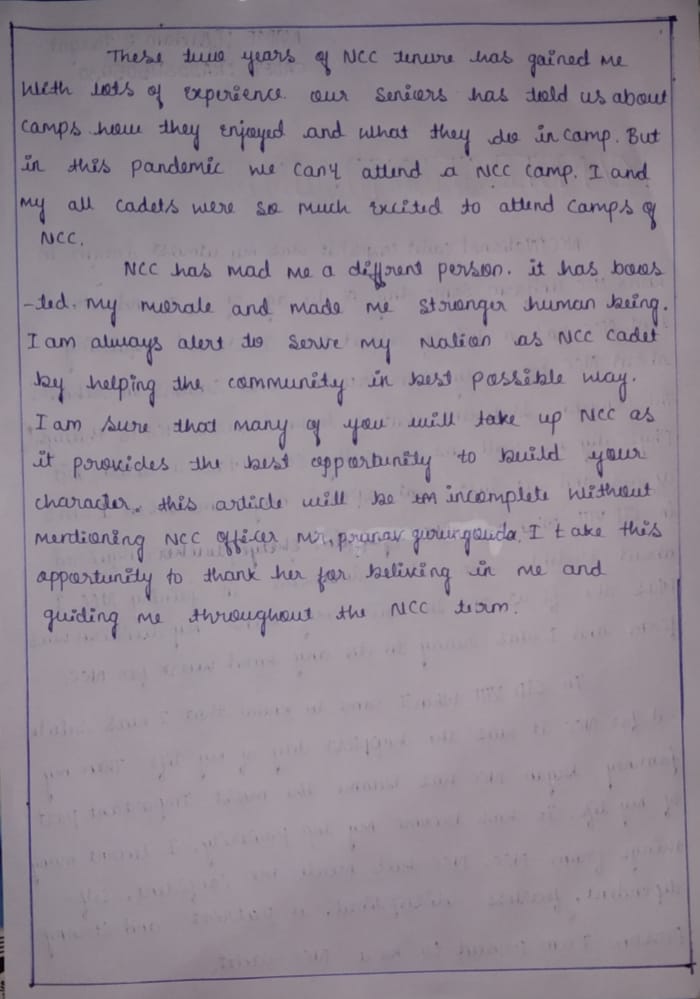 These two years of NCC tenure has gained me
with lots of experience. our seniors has told us about
camps how they enjoyed and what they do in camp. But
in this pandemic we can't attend a NCC camp. I and
my all cadets were so much excited to attend camps of
NCC.
NCC has mad me a different person. it has boos
-ted. my morale and made me stronger human being.
I am always alert to serve my Nation as NCC cadet
by helping the community in best possible way.
I am sure that many of you will take up NCC as
it provides the best opportunity to build your
character. this article will be incomplete without
mentioning NCC officer Mr. pranav I take this
opportunity to thank her for beliving in me and
guiding me throughout the NCC term.